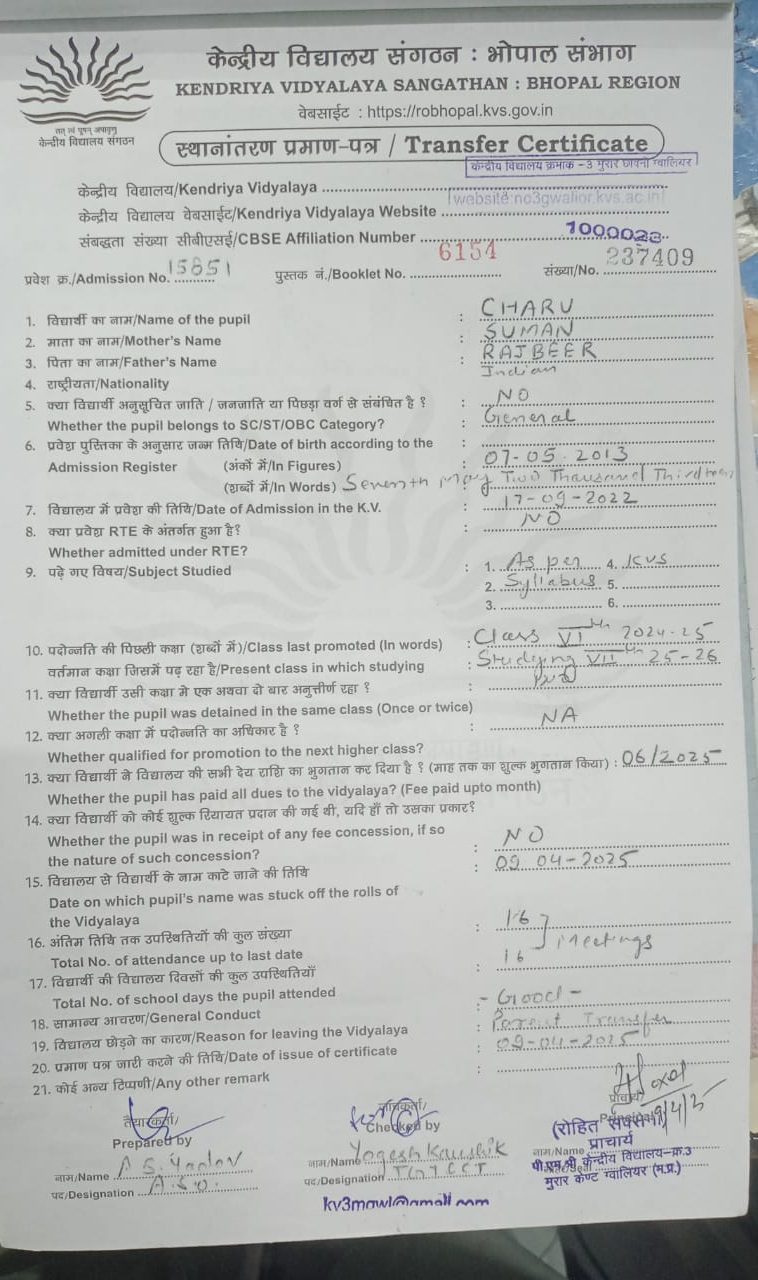 केन्द्रीय विद्यालय संगठन : भोपाल संभाग
KENDRIYA VIDYALAYA SANGATHAN : BHOPAL REGION
वेबसाईट : https://robhopal.kvs.gov.in
तत् त्वं पूषन् अपावृणु
केन्द्रीय विद्यालय संगठन
स्थानांतरण प्रमाण-पत्र / Transfer Certificate
केन्द्रीय विद्यालय क्रमांक -3 मुरार छावनी ग्वालियर
केन्द्रीय विद्यालय/Kendriya Vidyalaya
website:no3gwalior.kvs.ac.in
केन्द्रीय विद्यालय वेबसाईट/Kendriya Vidyalaya Website
संबद्धता संख्या सीबीएसई/CBSE Affiliation Number 1000023
प्रवेश क्र./Admission No. 15851 पुस्तक नं./Booklet No. 6154 संख्या/No. 237409
1. विद्यार्थी का नाम/Name of the pupil : CHARU
2. माता का नाम/Mother's Name : SUMAN
3. पिता का नाम/Father's Name : RAJBEER
4. राष्ट्रीयता/Nationality Indian
5. क्या विद्यार्थी अनुसूचित जाति / जनजाति या पिछड़ा वर्ग से संबंधित है ? : NO
Whether the pupil belongs to SC/ST/OBC Category? : General
6. प्रवेश पुस्तिका के अनुसार जन्म तिथि/Date of birth according to the :
Admission Register (अंकों में/In Figures) : 07-05-2013
(शब्दों में/In Words) Seventh May Two Thousand Thirteen
7. विद्यालय में प्रवेश की तिथि/Date of Admission in the K.V. : 17-09-2022
8. क्या प्रवेश RTE के अंतर्गत हुआ है? : NO
Whether admitted under RTE?
9. पढ़े गए विषय/Subject Studied : 1. As per 4. KVS
2. Syllabus 5.
3. 6.
10. पदोन्नति की पिछली कक्षा (शब्दों में)/Class last promoted (In words) : Class VI th 2024-25
वर्तमान कक्षा जिसमें पढ़ रहा है/Present class in which studying : Studying VII th 25-26
11. क्या विद्यार्थी उसी कक्षा मे एक अथवा दो बार अनुत्तीर्ण रहा ? :
Whether the pupil was detained in the same class (Once or twice)
12. क्या अगली कक्षा में पदोन्नति का अधिकार है ? : NA
Whether qualified for promotion to the next higher class?
13. क्या विद्यार्थी ने विद्यालय की सभी देय राशि का भुगतान कर दिया है ? (माह तक का शुल्क भुगतान किया) : 06/2025
Whether the pupil has paid all dues to the vidyalaya? (Fee paid upto month)
14. क्या विद्यार्थी को कोई शुल्क रियायत प्रदान की गई थी, यदि हाँ तो उसका प्रकार?
Whether the pupil was in receipt of any fee concession, if so
the nature of such concession? : NO
15. विद्यालय से विद्यार्थी के नाम काटे जाने की तिथि : 09-04-2025
Date on which pupil's name was stuck off the rolls of
the Vidyalaya
16. अंतिम तिथि तक उपस्थितियों की कुल संख्या : 16
Total No. of attendance up to last date : 16 } Meetings
17. विद्यार्थी की विद्यालय दिवसों की कुल उपस्थितियाँ
Total No. of school days the pupil attended
18. सामान्य आचरण/General Conduct : - Good -
19. विद्यालय छोड़ने का कारण/Reason for leaving the Vidyalaya : Parent Transfer
20. प्रमाण पत्र जारी करने की तिथि/Date of issue of certificate : 09-04-2025
21. कोई अन्य टिप्पणी/Any other remark :
तैयारकर्ता/
Prepared by
नाम/Name A S. Yadav
पद/Designation A.S.O.
Checked by
नाम/Name Yogesh Kaushik
पद/Designation TGT CCT
(रोहित सक्सेना)
प्राचार्य
नाम/Name
पी.एम.श्री केन्द्रीय विद्यालय-क्र.3
मुरार केण्ट ग्वालियर (म.प्र.)